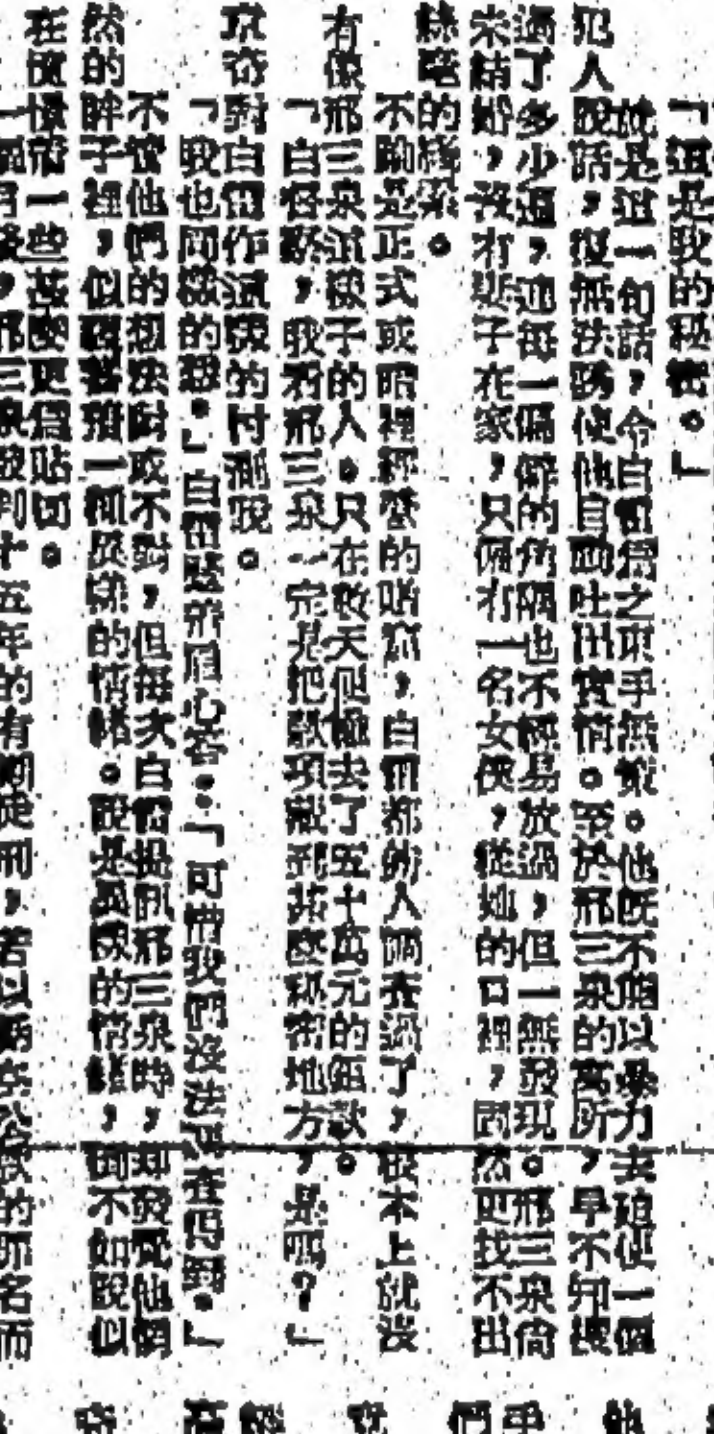 「這是我的秘密。」
就是這一句話，令白雷為之束手無策。他既不能以暴力去迫使一個
犯人說話，復無法誘使他自動吐出實情。至於邢三泉的寓所，早不知搜
過了多少遍，連每一偏僻的角隅也不輕易放過，但一無發現。邢三泉尚
未結婚，沒有妻子在家，只僱有一名女傭，從她的口裡，固然更找不出
絲毫的綫索。
不論是正式或暗裡經營的賭窟，白雷都銜人調查過了，根本上就沒
有像邢三泉這樣子的人。只在數天但輸去了五十萬元的鉅款。
「白督察，我看邢三泉一定是把款項藏到某處秘密地方，是嗎？」
對白雷作試探的忖測說。
「我也同樣的想。」白雷蹙着眉心答：「可惜我們沒法調查得到。」
不管他們的想法對或不對，但每次白雷提訊邢三泉時，却發覺他悄
然的眸子裡，似隱蓄着一種異樣的情緒。說是異樣的情緒，倒不如說似
在憤懣着一些甚麼更為貼切。
一個月後，邢三泉被判十五年的有期徒刑，若以虧空公款的罪名而